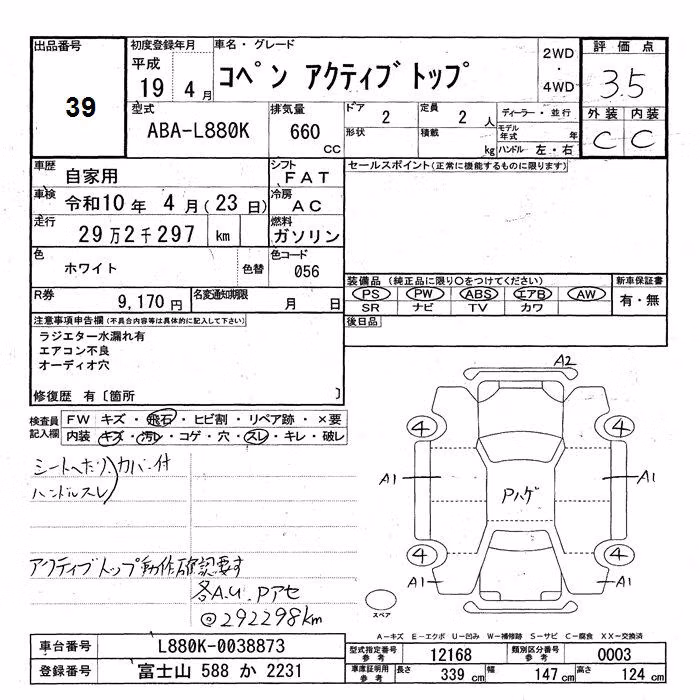 出品番号
39
初度登録年月
平成
19 4月
車名・グレード
コペン アクティブトップ
2WD
・
4WD
評価点
3.5
外装 内装
C C
型式
ABA-L880K
排気量
660 CC
ドア
2
定員
2 人
形状
積載
kg
ディーラー・並行
モデル年式 年
ハンドル 左・右
車歴
自家用
シフト
FAT
車検
令和10年 4月(23日)
冷房
AC
走行
29万2千297 km
燃料
ガソリン
色
ホワイト
色替
色コード
056
R券
9,170円
名変通知期限
月 日
セールスポイント(正常に機能するものに限ります)
装備品 (純正品に限り○をつけてください)
PS PW ABS エアB AW
SR ナビ TV カワ
新車保証書
有・無
後日品
注意事項申告欄(不具合内容等は具体的に記入して下さい)
ラジエター水漏れ有
エアコン不良
オーディオ穴
修復歴 有〔箇所 〕
検査員記入欄
FW キズ・飛石・ヒビ割・リペア跡・×要
内装 キズ・汚レ・コゲ・穴・スレ・キレ・破レ
シートへたり)カバー付
ハンドルスレ
アクティブトップ動作確認要す
各A.U.Pアセ
◎292298km
A2
4 4
A1 A1
Pハゲ
4 4
A1 A1
スペア
A−キズ E−エクボ U−凹み W−補修跡 S−サビ C−腐食 XX−交換済
車台番号
L880K-0038873
登録番号
富士山 588 か 2231
型式指定番号参考
12168
類別区分番号参考
0003
車庫証明用参考
長さ 339 cm 幅 147 cm 高さ 124 cm